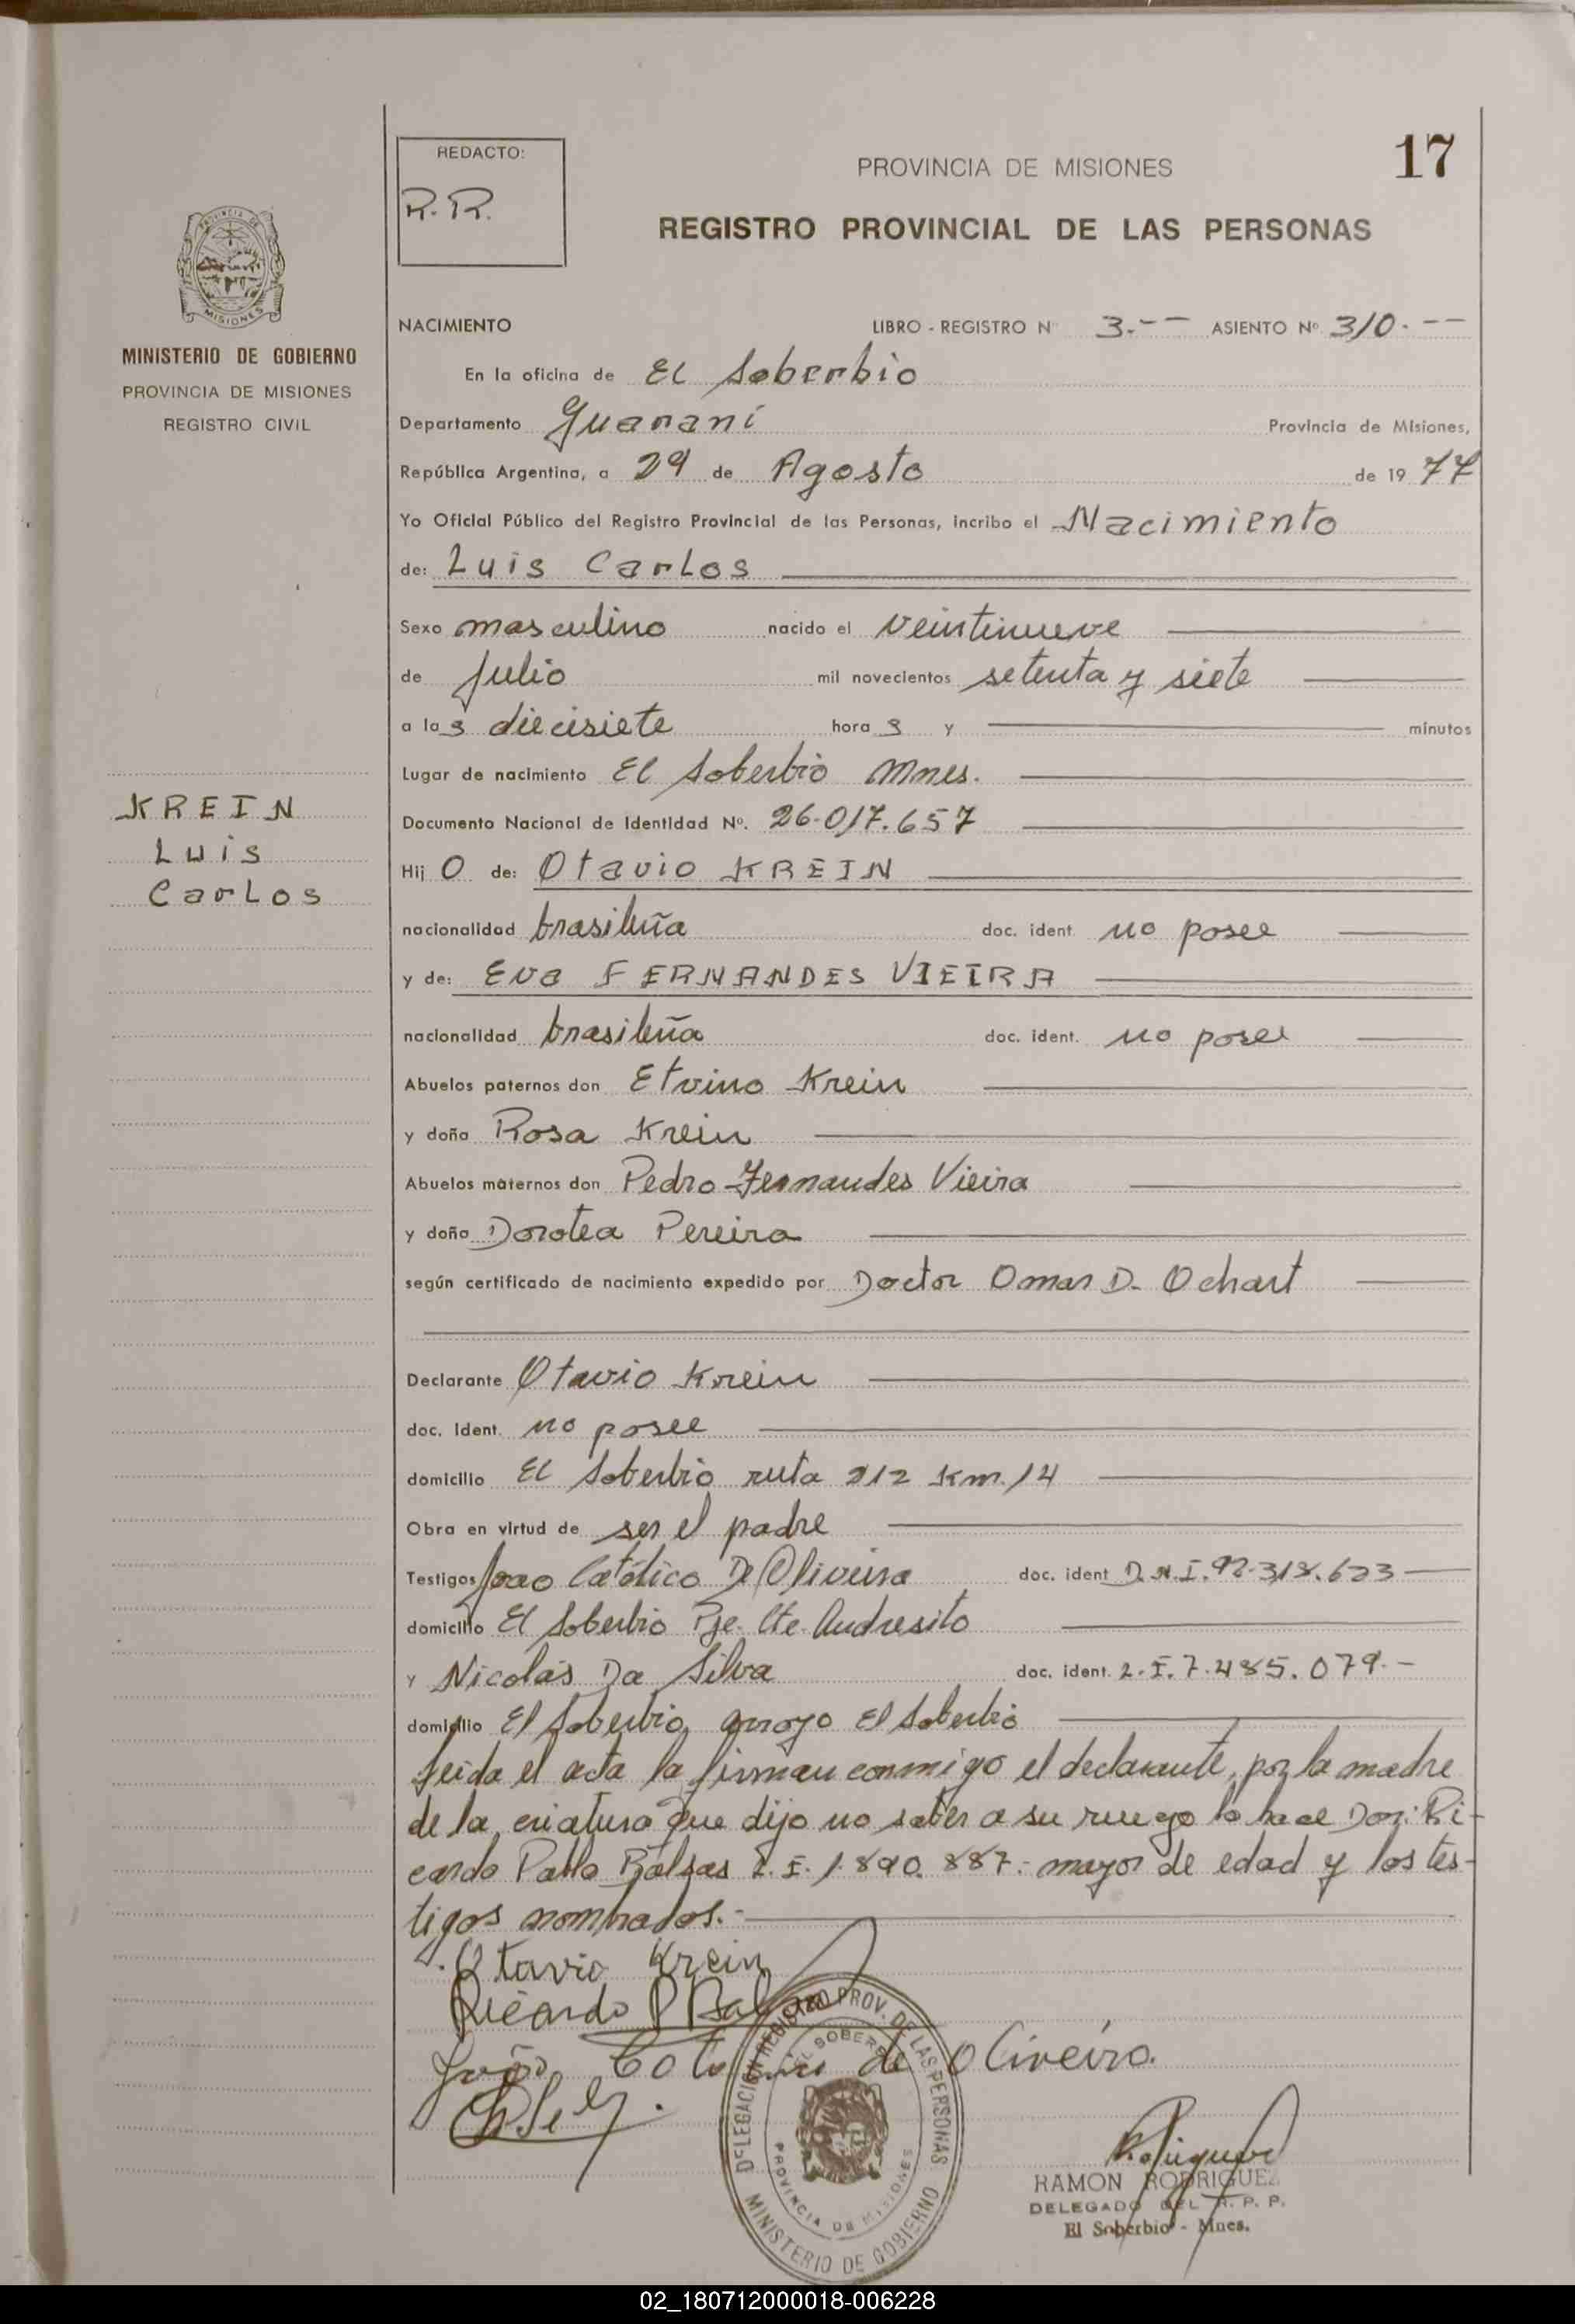 17
REDACTO:
R. R.
PROVINCIA DE MISIONES
REGISTRO PROVINCIAL DE LAS PERSONAS
MISIONES
MINISTERIO DE GOBIERNO
PROVINCIA DE MISIONES
REGISTRO CIVIL
KREIN
Luis
Carlos
NACIMIENTO LIBRO - REGISTRO N° 3.-- ASIENTO Nº 310.--
En la oficina de El Soberbio
Departamento Guaraní Provincia de Misiones,
República Argentina, a 29 de Agosto de 1977
Yo Oficial Público del Registro Provincial de las Personas, incribo el Nacimiento
de: Luis Carlos
Sexo masculino nacido el veintinueve
de julio mil novecientos setenta y siete
a las diecisiete horas y minutos
Lugar de nacimiento El Soberbio Mnes.
Documento Nacional de Identidad Nº. 26.017.657
Hij O de: Otavio KREIN
nacionalidad brasileña doc. ident. no posee
y de: Eva FERNANDES VIEIRA
nacionalidad brasileña doc. ident. no posee
Abuelos paternos don Etvino Krein
y doña Rosa Krein
Abuelos maternos don Pedro Fernandes Vieira
y doña Dorotea Pereira
según certificado de nacimiento expedido por Doctor Omar D. Ochart
Declarante Otavio Krein
doc. ident. no posee
domicilio El Soberbio ruta 212 Km. 14
Obra en virtud de ser el padre
Testigos Joao Católico De Oliveira doc. ident D.N.I. 92.318.623
domicilio El Soberbio Pje. Cte. Andresito
y Nicolás Da Silva doc. ident. L.E. 7.485.079.-
domicilio El Soberbio, arroyo El Soberbio
Leida el acta la firman conmigo el declarante, por la madre
de la criatura que dijo no saber a su ruego lo hace Don: Ri-
cardo Pablo Balsas L.E. 1.890.887.- mayor de edad y los tes-
tigos nombrados.-
Otavio Krein
Ricardo P Bal
João de Oliveira.
DELEGACIÓN REGISTRO PROV. DE LAS PERSONAS
EL SOBERBIO
PROVINCIA DE MISIONES
MINISTERIO DE GOBIERNO
RAMON RODRIGUEZ
DELEGADO DEL R. P. P.
El Soberbio - Mnes.
02_180712000018-006228